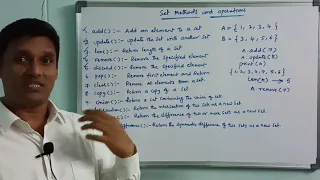 Set Methods and operations
1. add() :- Add an element to a set
2. update() :- Update the set with another set
3. len() :- Return length of a set
4. remove() :- Remove the specified element
5. :- Remove the specified element
6. pop() :- Remove first element and Return
7. clear() :- Remove all elements of this set
8. copy() :- Return a copy of a set
9. union() :- Return a set containing the union of set
:- Return the intersection of two sets as a new set
:- Return the difference of two or more sets as a new set
:- Return the symmetric difference of two sets as a new set
A = {1, 2, 3, 4}
B = {3, 4, 5, 6}
A.add(5)
A.update(B)
print(A)
{1, 2, 3, 4, 5,
len(A) → 5
A.remove(